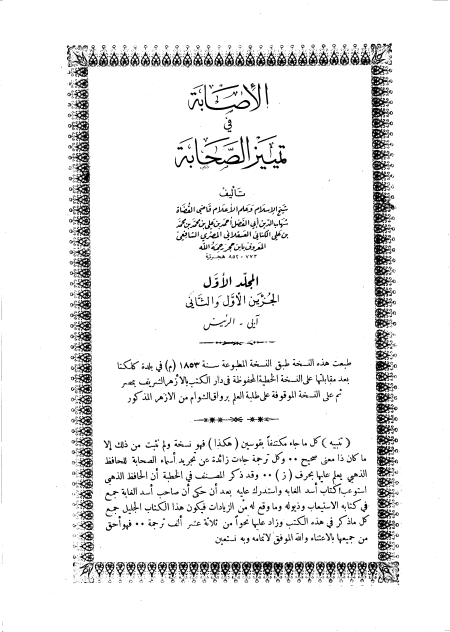 الإصابة
في
تمييز الصحابة
تأليف
شيخ الإسلام وعلم الأعلام قاضي القضاة
شهاب الدين أبي الفضل أحمد بن علي بن محمد بن محمد
بن علي الكناني العسقلاني المصري الشافعي
المعروف بابن حجر رحمه الله
٧٧٣-٨٥٢ هجرية
المجلد الأول
الجزءين الأول والثاني
آبي - الرئيس
طبعت هذه النسخة طبق النسخة المطبوعة سنة ١٨٥٣ (م) في بلدة كلكتا
بعد مقابلتها على النسخة الخطية المحفوظة في دار الكتب بالأزهر الشريف بمصر
ثم على النسخة الموقوفة على طلبة العلم برواق الشوام من الازهر المذكور
( تنبيه ) كل ما جاء مكتنفاً بقوسين ( هكذا ) فهو نسخة ولم نثبت من ذلك إلا
ما كان ذا معنى صحيح ٠٠ وكل ترجمة جاءت زائدة عن تجريد أسماء الصحابة للحافظ
الذهبي يعلم عليها بحرف ( ز ) ٠٠ وقد ذكر المصنف في الخطبة أن الحافظ الذهبي
استوعب كتاب أسد الغابه واستدرك عليه بعد أن حكى أن صاحب أسد الغابة جمع
في كتابه الاستيعاب وذيوله وما وقع له من الزيادات فيكون هذا الكتاب الجليل جمع
كل ما ذكر في هذه الكتب وزاد عليها نحواً من ثلاثة عشر ألف ترجمة ٠٠ فهو أحق
من جميعها بالاعتناء والله الموفق لاتمامه وبه نستعين